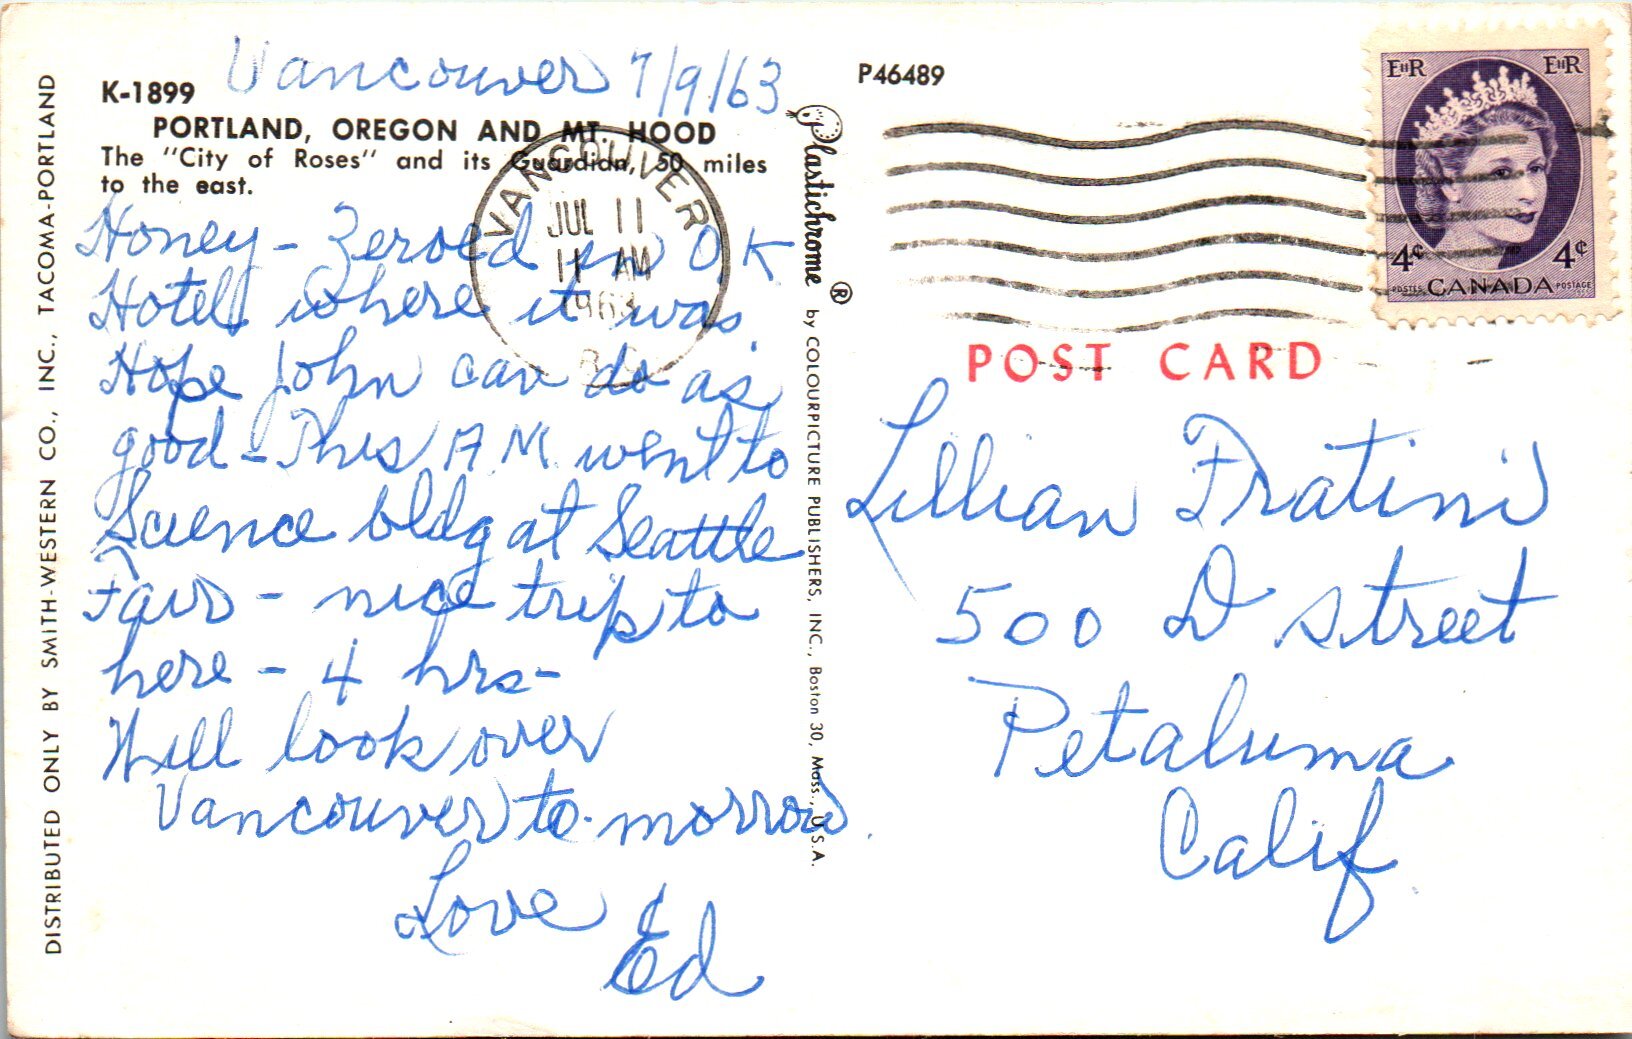 Vancouver 7/9/63
K-1899
PORTLAND, OREGON AND MT. HOOD
The "City of Roses" and its Guardian, 50 miles
to the east.
Honey - Zeroed in O.K
Hotel where it was
Hope John can do as
good - This A.M. went to
Science bldg at Seattle
Fair - nice trip to
here - 4 hrs -
Will look over
Vancouver to-morrow.
Love
Ed
DISTRIBUTED ONLY BY SMITH-WESTERN CO., INC., TACOMA-PORTLAND
VANCOUVER
JUL 11
11 AM
1963
B.C.
Plastichrome ® by COLOURPICTURE PUBLISHERS, INC., Boston 30, Mass., U.S.A.
P46489
EIIR EIIR
4¢ 4¢
POSTES CANADA POSTAGE
POST CARD
Lillian Fratini
500 D street
Petaluma
Calif